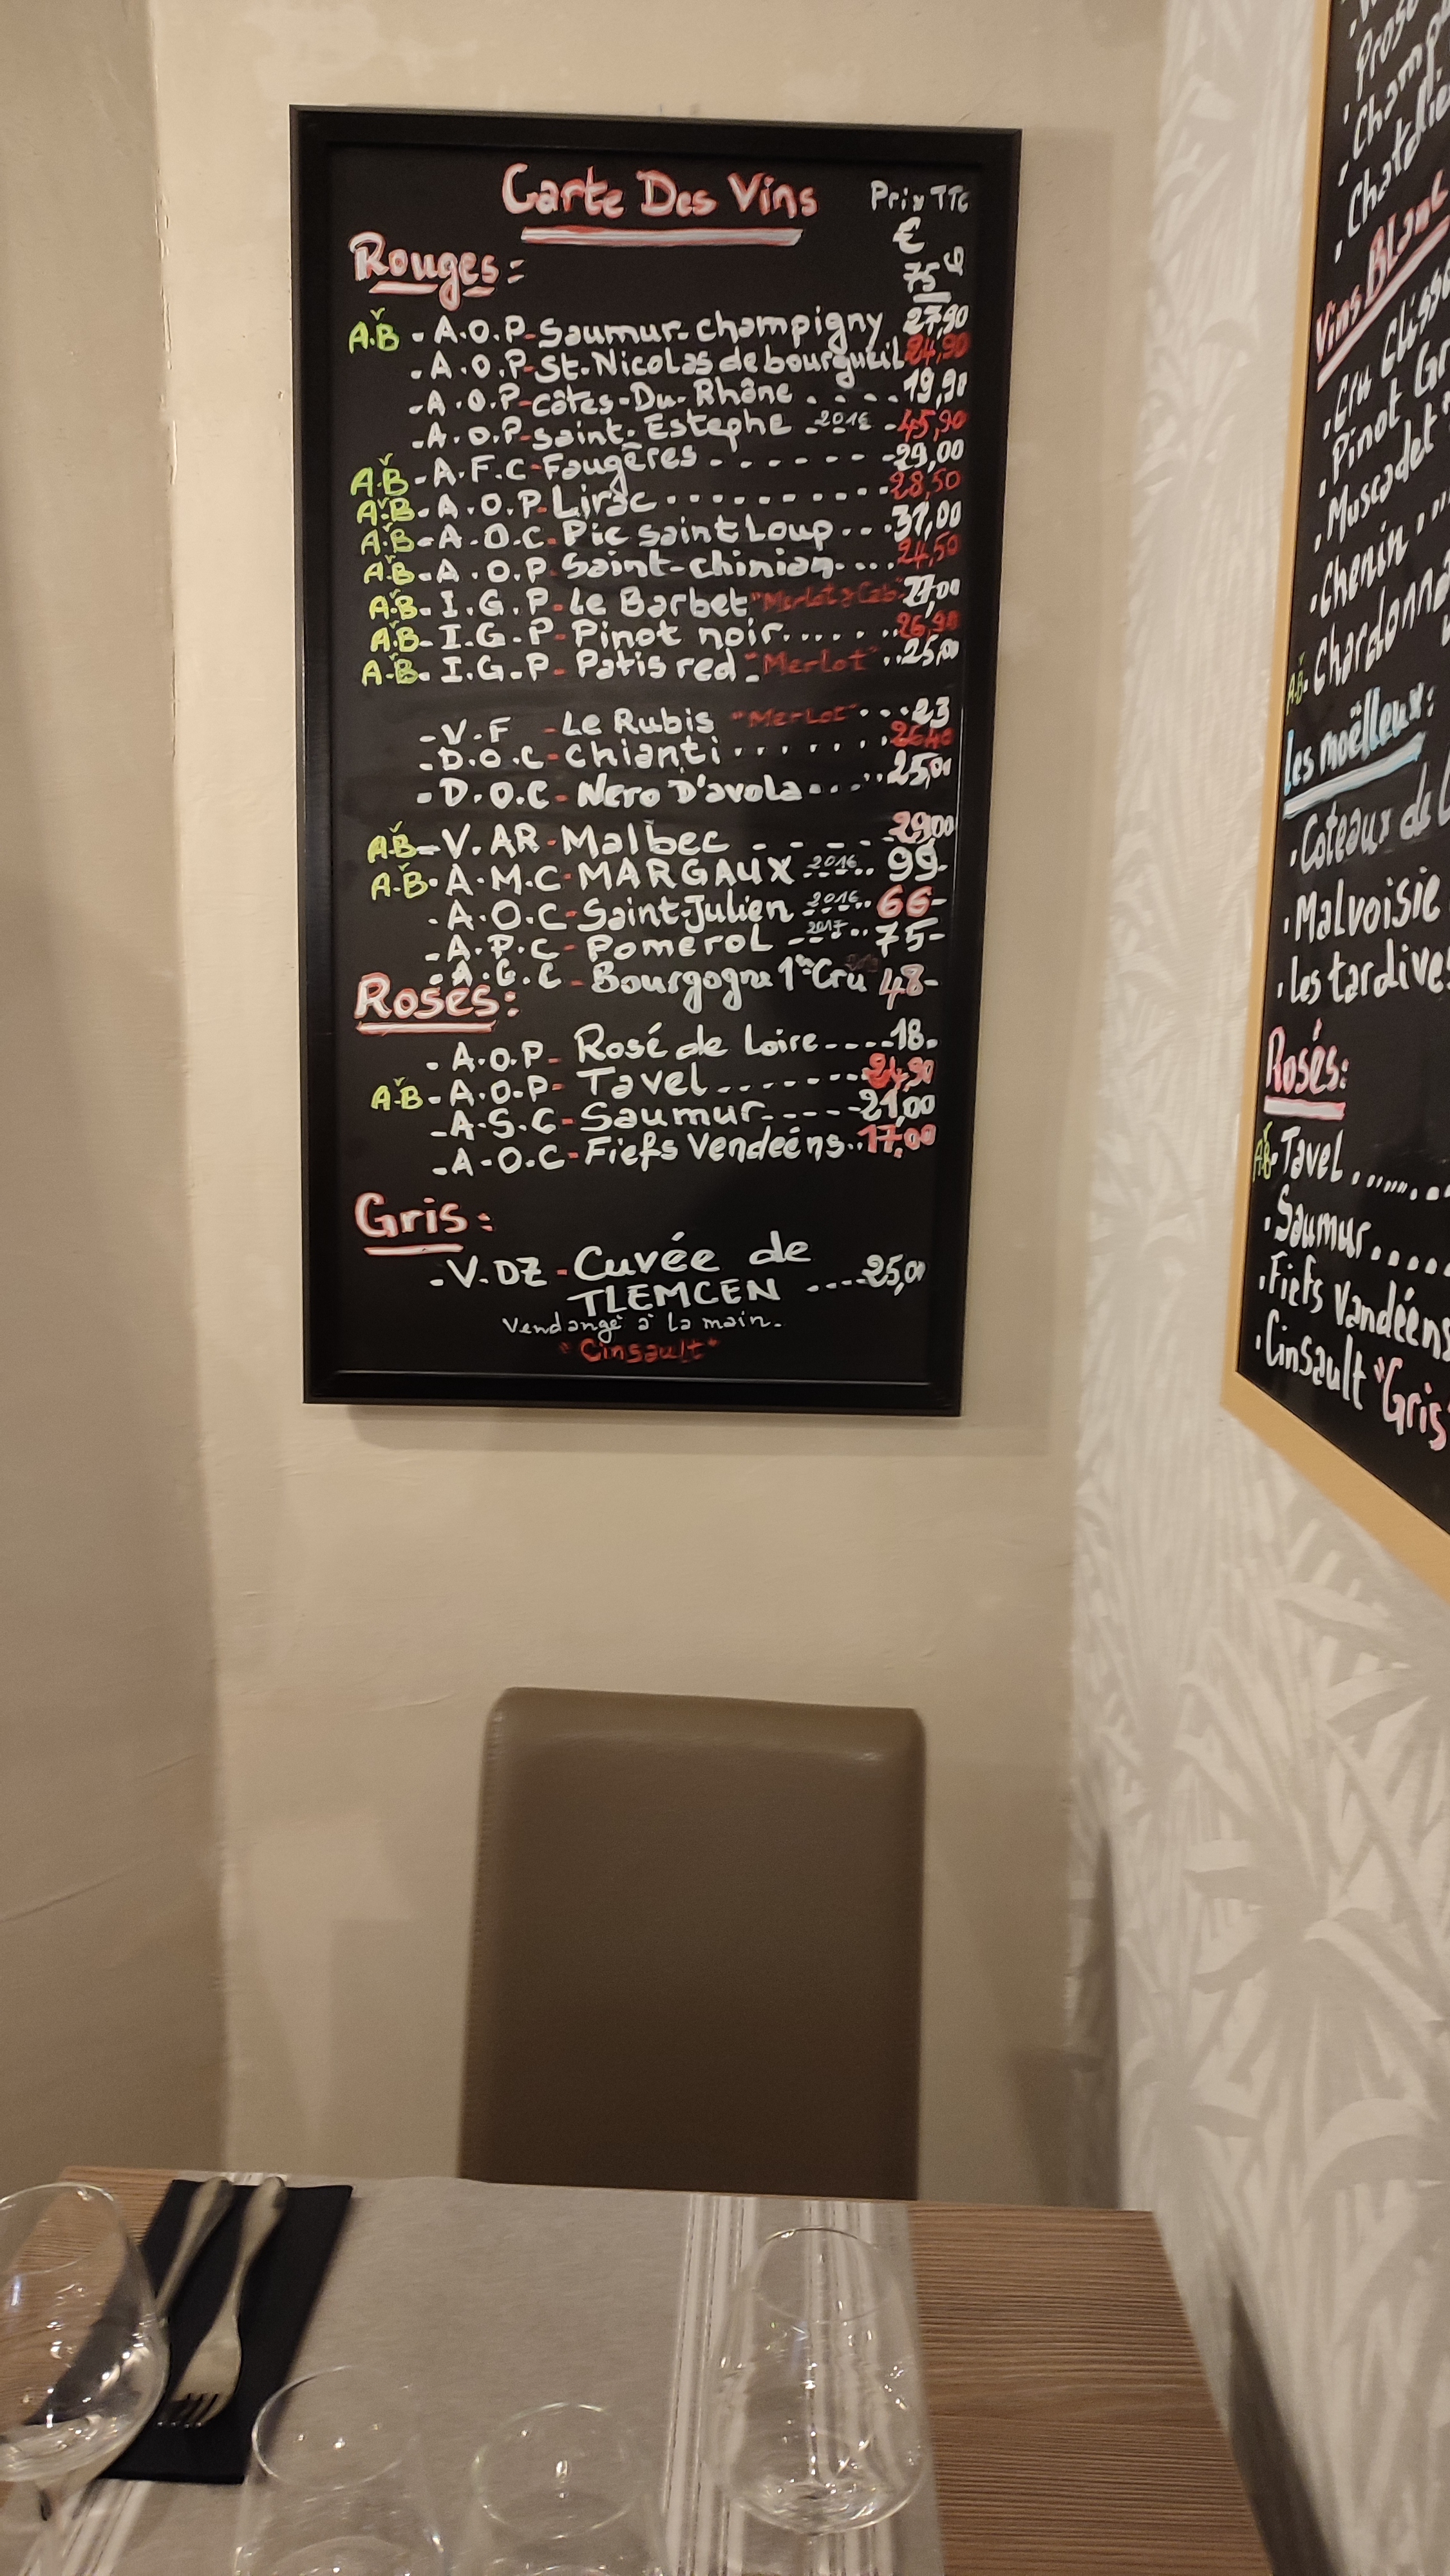 Carte Des Vins
Prix TTC
€
75 cl
Rouges:
AB - A.O.P-Saumur-champigny 27,90
- A.O.P-St.Nicolas de bourgueil 24,90
- A.O.P-côtes-Du-Rhône .....19,90
- A.O.P-saint-Estephe -2016 -45,90
AB - A.F.C-Faugères .......-29,00
AB - A.O.P-Lirac..........28,50
AB - A.O.C-Pic saint Loup...31,00
AB - A.O.P-Saint-chinian....24,50
AB - I.G.P-Le Barbet "Merlot & Cab" 27,00
AB - I.G.P-Pinot noir.......26,90
AB - I.G.P-Patis red: "Merlot" ..25,00
- V.F -Le Rubis "Merlot" ...23
- D.O.C-chianti ........26,40
- D.O.C-Nero D'avola......25,00
AB - V.AR-Malbec ----- 29,00
AB - A.M.C-MARGAUX 2016.. 99-
- A.O.C-Saint-Julien 2016.. 66-
- A.P.C-Pomerol 2017.. 75-
- A.G.C - Bourgogne 1er Cru 48-
Rosés:
- A.O.P- Rosé de Loire----18-
AB - A.O.P- Tavel.......24,90
- A.S.C-Saumur-----21,00
- A-O.C-Fiefs Vendeéns..17,00
Gris:
- V.DZ-Cuvée de
TLEMCEN ....25,00
Vendangé à la main-
"Cinsault"
Vins Blanc
Cru Cliss
Pinot Gr
Muscadet
Chenin ...
AB- Chardonna
Les moëlleux:
Coteaux de L
Malvoisie
Les tardives
Rosés:
AB- Tavel........
Saumur.....
Fiefs Vandéens
Cinsault "Gris"